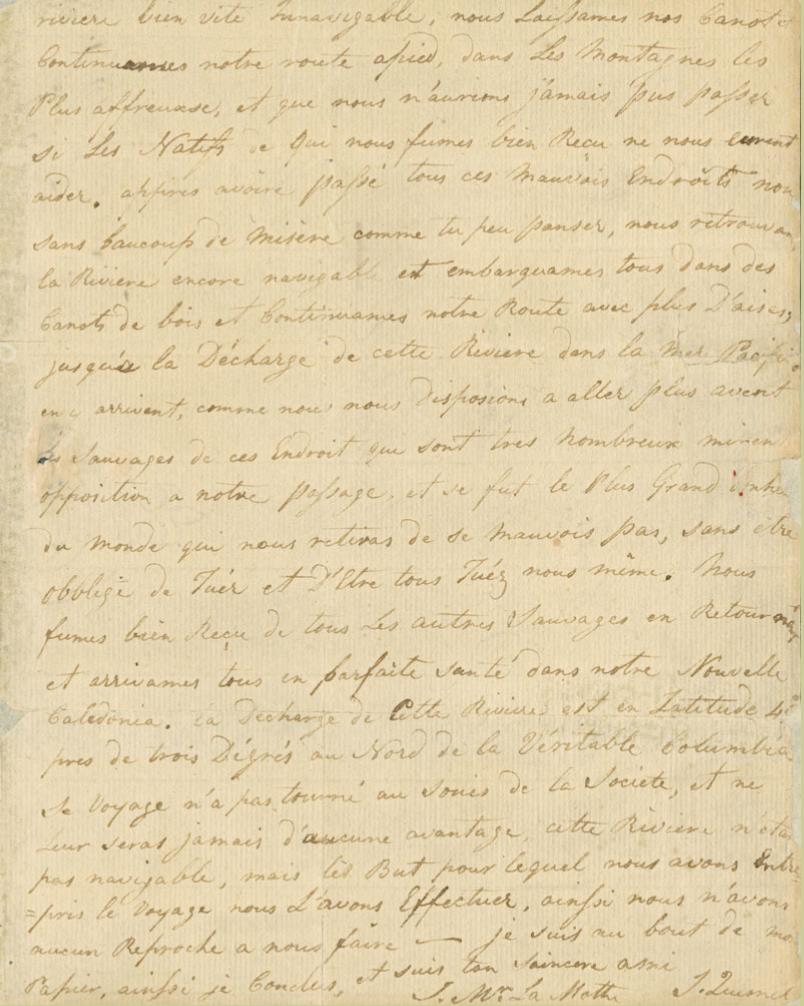 riviere bien vite innavigable, nous Laissames nos Canots et
Continuames notre route apied, dans Les Montagnes les
Plus affreuse, et que nous n'aurions j'amais pus passer
si Les Natifs de Qui nous fumes bien Recu ne nous eurent
aider. appres avoire passé tous ces Mauvais Endroits non
sans baucoup de Misère comme tu peu panser, nous retrouvam
la Riviere encore navigable et embarquames tous dans des
Canots de bois et Continuames notre Route avec plus D'aises,
jusqu'a la Décharge de cette Riviere dans la Mer Pacifi
en arrivent, comme nous nous disposions a aller plus avent
Les Sauvages de ces Endroit qui sont tres Nombreux mirent
opposition a notre passage, et se fut le Plus Grand
du Monde qui nous retiras de se Mauvois pas, sans être
obbligé de Tuér et D'Etre tous Tuéz nous même. Nous
fumes bien Reçu de tous Les autres Sauvages en Retournant
et arrivames tous en parfaite santé dans notre Nouvelle
Caledonia. la Decharge de Cette Riviere est en Latitude 4
pres de trois Dégrés au Nord de la Véritable Columbia
se Voyage n'a pas tourné au de la Societe, et ne
Leur seras jamais d'aucune avantage, cette Riviere n'eta
pas navigable, mais les But pour lequel nous avons Entre
=pris le Voyage nous L'avons Effectuer, ainssi nous n'avons
aucun Reproche a nous faire — je suis au bout de mo
Papier, ainssi je Conclus, et suis ton saincere ami
J. Mr. La Mothe J. Quesnel